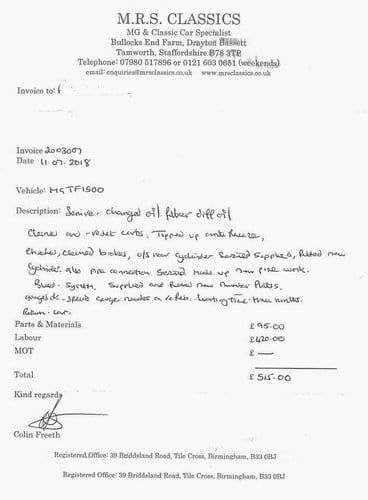 M.R.S. CLASSICS
MG & Classic Car Specialist
Bullocks End Farm, Drayton Bassett
Tamworth, Staffordshire B78 3TP
Telephone: 07980 517896 or 0121 603 0651 (weekends)
email: enquiries@mrsclassics.co.uk www.mrsclassics.co.uk
Invoice to:
Invoice 2003007
Date 11.07.2018
Vehicle: MGTF1500
Description: Service - changed oil, filter diff oil
Cleaned and reset carbs, Topped up anti freeze,
Checked, cleaned brakes, o/s rear cylinder seized supplied, fitted new
cylinder. also pipe connection seized made up new pipe work.
system. Supplied and fitted new number plates.
speedo gauge needles
Return car.
Parts & Materials £95-00
Labour £420-00
MOT £ —
Total £515-00
Kind regards
Colin Freeth
Registered.Office: 39 Briddsland Road, Tile Cross, Birmingham, B33 0BJ
Registered.Office: 39 Briddsland Road, Tile Cross, Birmingham, B33 0BJ